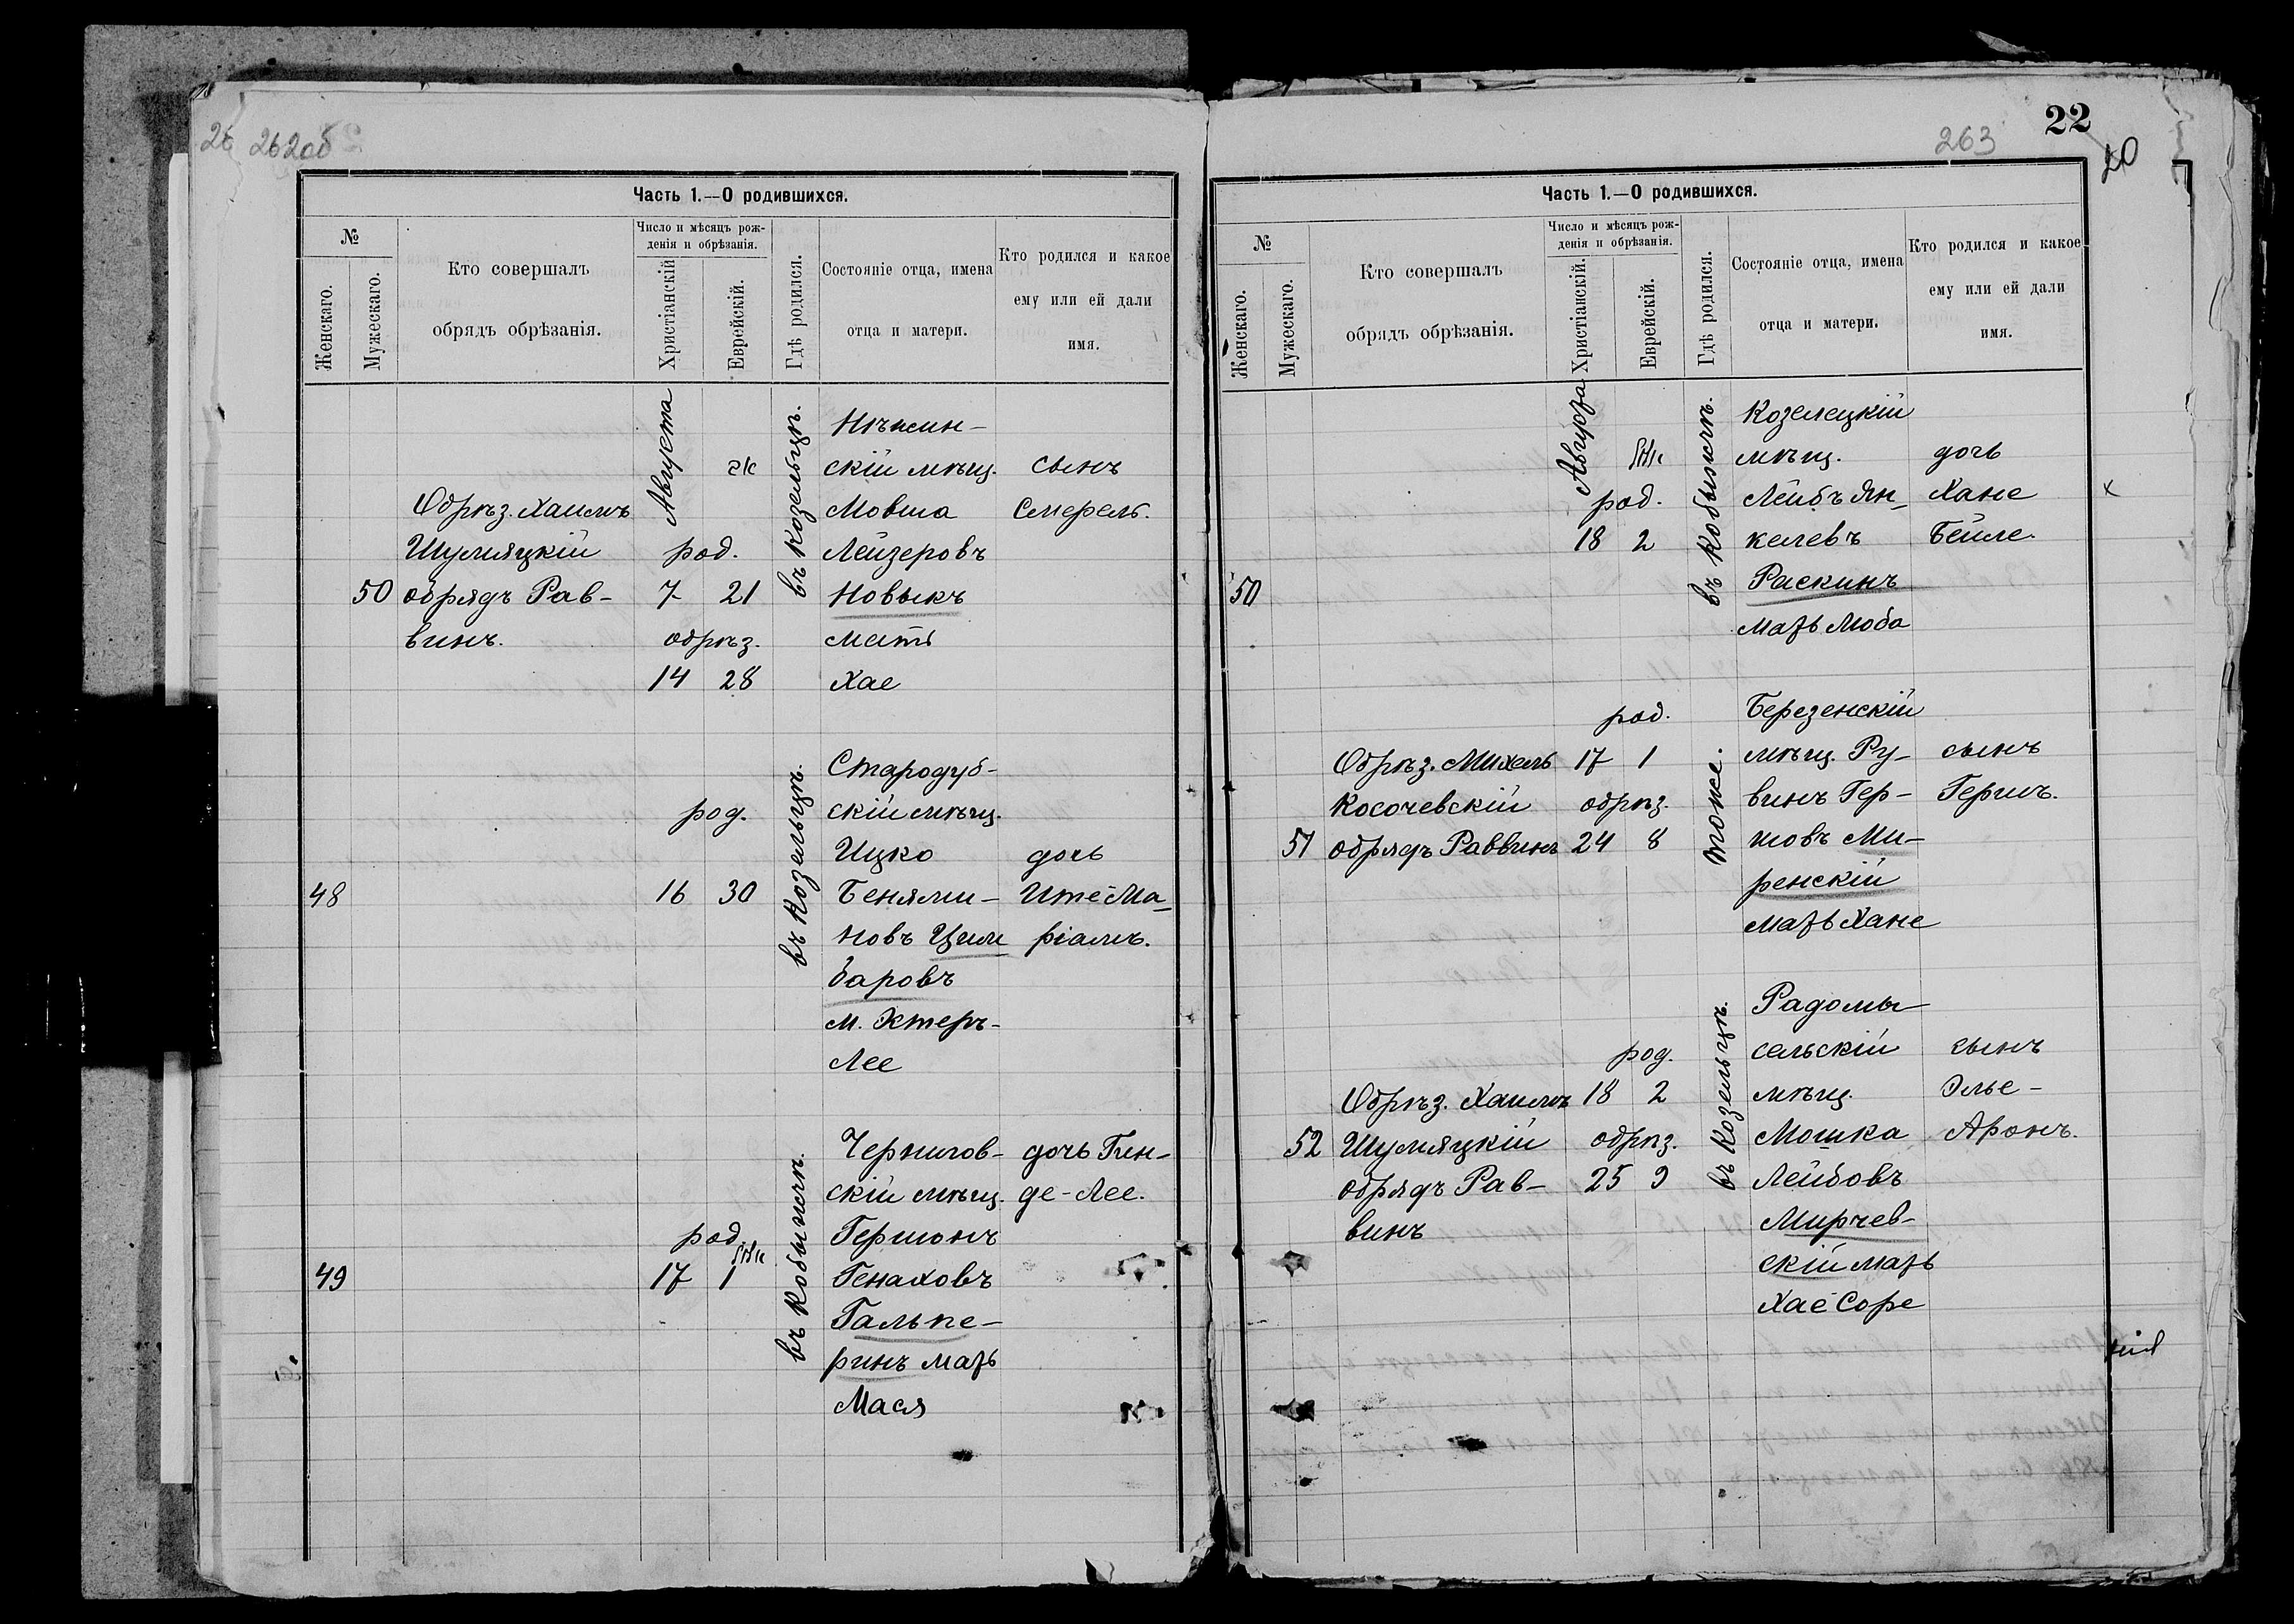 26 262об
Часть 1.—О родившихся.
№
Женскаго.
Мужескаго.
Кто совершалъ
обрядъ обрѣзанія.
Число и мѣсяцъ рож-
денія и обрѣзанія.
Христіанскій
Еврейскій.
Гдѣ родился.
Состояніе отца, имена
отца и матери.
Кто родился и какое
ему или ей дали
имя.
50
Обрѣз. Хаимъ
Шумяцкій
обрядъ Рав-
винъ.
Августа
род.
7 21
обрѣз.
14 28
въ Козельцѣ.
Нѣжин-
скій мѣщ.
Мовша
Лейзеровъ
Новыкъ
мать
Хае
сынъ
Смерель.
48
род.
16 30
въ Козельцѣ.
Стародуб-
скій мѣщ.
Ицко
Бенями-
новъ Цим
баровъ
м. Эстеръ-
Лее
дочь
Ите Ма-
ріамъ.
49
род.
17 1
въ Кобыжчѣ.
Чернигов-
скій мѣщ.
Гершонъ
Генаховъ
Гальпе-
ринъ мать
Мася
дочь Гин-
де-Лее.
263
22
20
Часть 1.—О родившихся.
№
Женскаго.
Мужескаго.
Кто совершалъ
обрядъ обрѣзанія.
Число и мѣсяцъ рож-
денія и обрѣзанія.
Христіанскій.
Еврейскій.
Гдѣ родился.
Состояніе отца, имена
отца и матери.
Кто родился и какое
ему или ей дали
имя.
50
Августа
род.
18 2
въ Кобыжчѣ.
Козелецкій
мѣщ.
Лейбъ Ян-
келевъ
Раскинъ
мать Люба
дочь
Хане
Бейле.
х
51
Обрѣз. Михель
Косочевскій
обрядъ Раввинъ
род.
17 1
обрѣз.
24 8
тоже.
Березенскій
мѣщ. Ру-
винъ Гер-
шовъ Ми-
ренскій
мать Хане
сынъ
Гершъ.
52
Обрѣз. Хаимъ
Шумяцкій
обрядъ Рав-
винъ
род.
18 2
обрѣз.
25 9
въ Козельцѣ.
Радомы-
сельскій
мѣщ.
Мошка
Лейбовъ
Мирчев-
скій мать
Хае Соре
сынъ
Элье-
Аронъ.